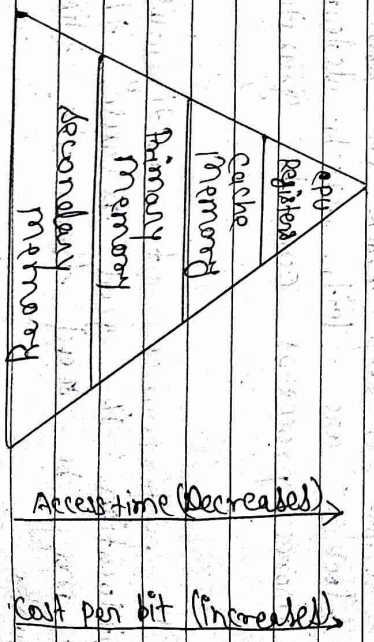 CPU
Registers
Cache
Memory
Primary
Memory
Secondary
Memory
Access time (Decreases)
Cost per bit (increases)